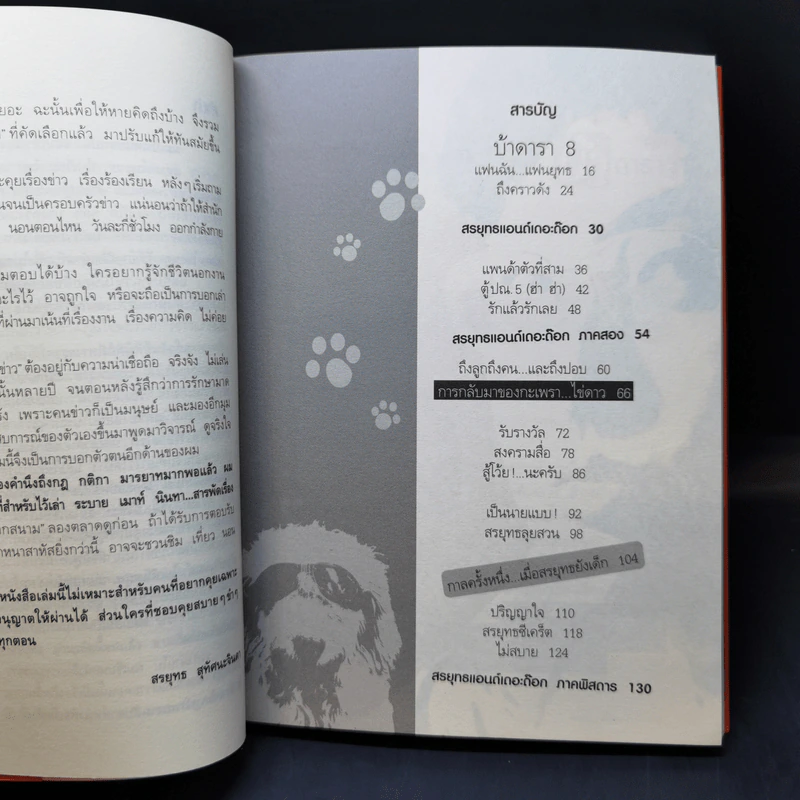 ยอะ ฉะนั้นเพื่อให้หายคิดถึงบ้าง จึงรวม
ที่คัดเลือกแล้ว มาปรับแก้ให้ทันสมัยขึ้น
ะคุยเรื่องข่าว เรื่องร้องเรียน หลังๆเริ่มถาม
นจนเป็นครอบครัวข่าว แน่นอนว่าถ้าให้สำนัก
นอนตอนไหน วันละกี่ชั่วโมง ออกกำลังกาย
มตอบได้บ้าง ใครอยากรู้จักชีวิตนอกงาน
ะไรไว้ อาจถูกใจ หรือจะถือเป็นการบอกเล่า
ที่ผ่านมาเน้นที่เรื่องงาน เรื่องความคิด ไม่ค่อย
ข่าว" ต้องอยู่กับความน่าเชื่อถือ จริงจัง ไม่เล่น
นั้นหลายปี จนตอนหลังรู้สึกว่าการรักษามาด
ง เพราะคนข่าวก็เป็นมนุษย์ และมองอีกมุม
สบการณ์ของตัวเองขึ้นมาพูดมาวิจารณ์ ดูจริงใจ
มนี้จึงเป็นการบอกตัวตนอีกด้านของผม
องคำนึงถึงกฎ กติกา มารยาทมากพอแล้ว ผม
ที่สำหรับไว้เล่า ระบาย เมาท์ นินทา...สารพัดเรื่อง
กสนาม" ลองตลาดดูก่อน ถ้าได้รับการตอบรับ
หนาสาหัสยิ่งกว่านี้ อาจจะชวนชิม เที่ยว นอน
หนังสือเล่มนี้ไม่เหมาะสำหรับคนที่อยากคุยเฉพาะ
นุญาตให้ผ่านได้ ส่วนใครที่ชอบคุยสบายๆขำๆ
ทุกตอน
สรยุทธ สุทัศนะจินดา
สารบัญ
บ้าดารา 8
แฟนฉัน...แฟนยุทธ 16
ถึงคราวดัง 24
สรยุทธแอนด์เดอะด๊อก 30
แพนด้าตัวที่สาม 36
ตู้ปณ.5 (ฮ่า ฮ่า) 42
รักแล้วรักเลย 48
สรยุทธแอนด์เดอะด๊อก ภาคสอง 54
ถึงลูกถึงคน...และถึงปอบ 60
การกลับมาของกะเพรา...ไข่ดาว 66
รับรางวัล 72
สงครามสื่อ 78
สู้โว้ย!...นะครับ 86
เป็นนายแบบ! 92
สรยุทธลุยสวน 98
กาลครั้งหนึ่ง...เมื่อสรยุทธยังเด็ก 104
ปริญญาใจ 110
สรยุทธซีเคร็ต 118
ไม่สบาย 124
สรยุทธแอนด์เดอะด๊อก ภาคพิสดาร 130